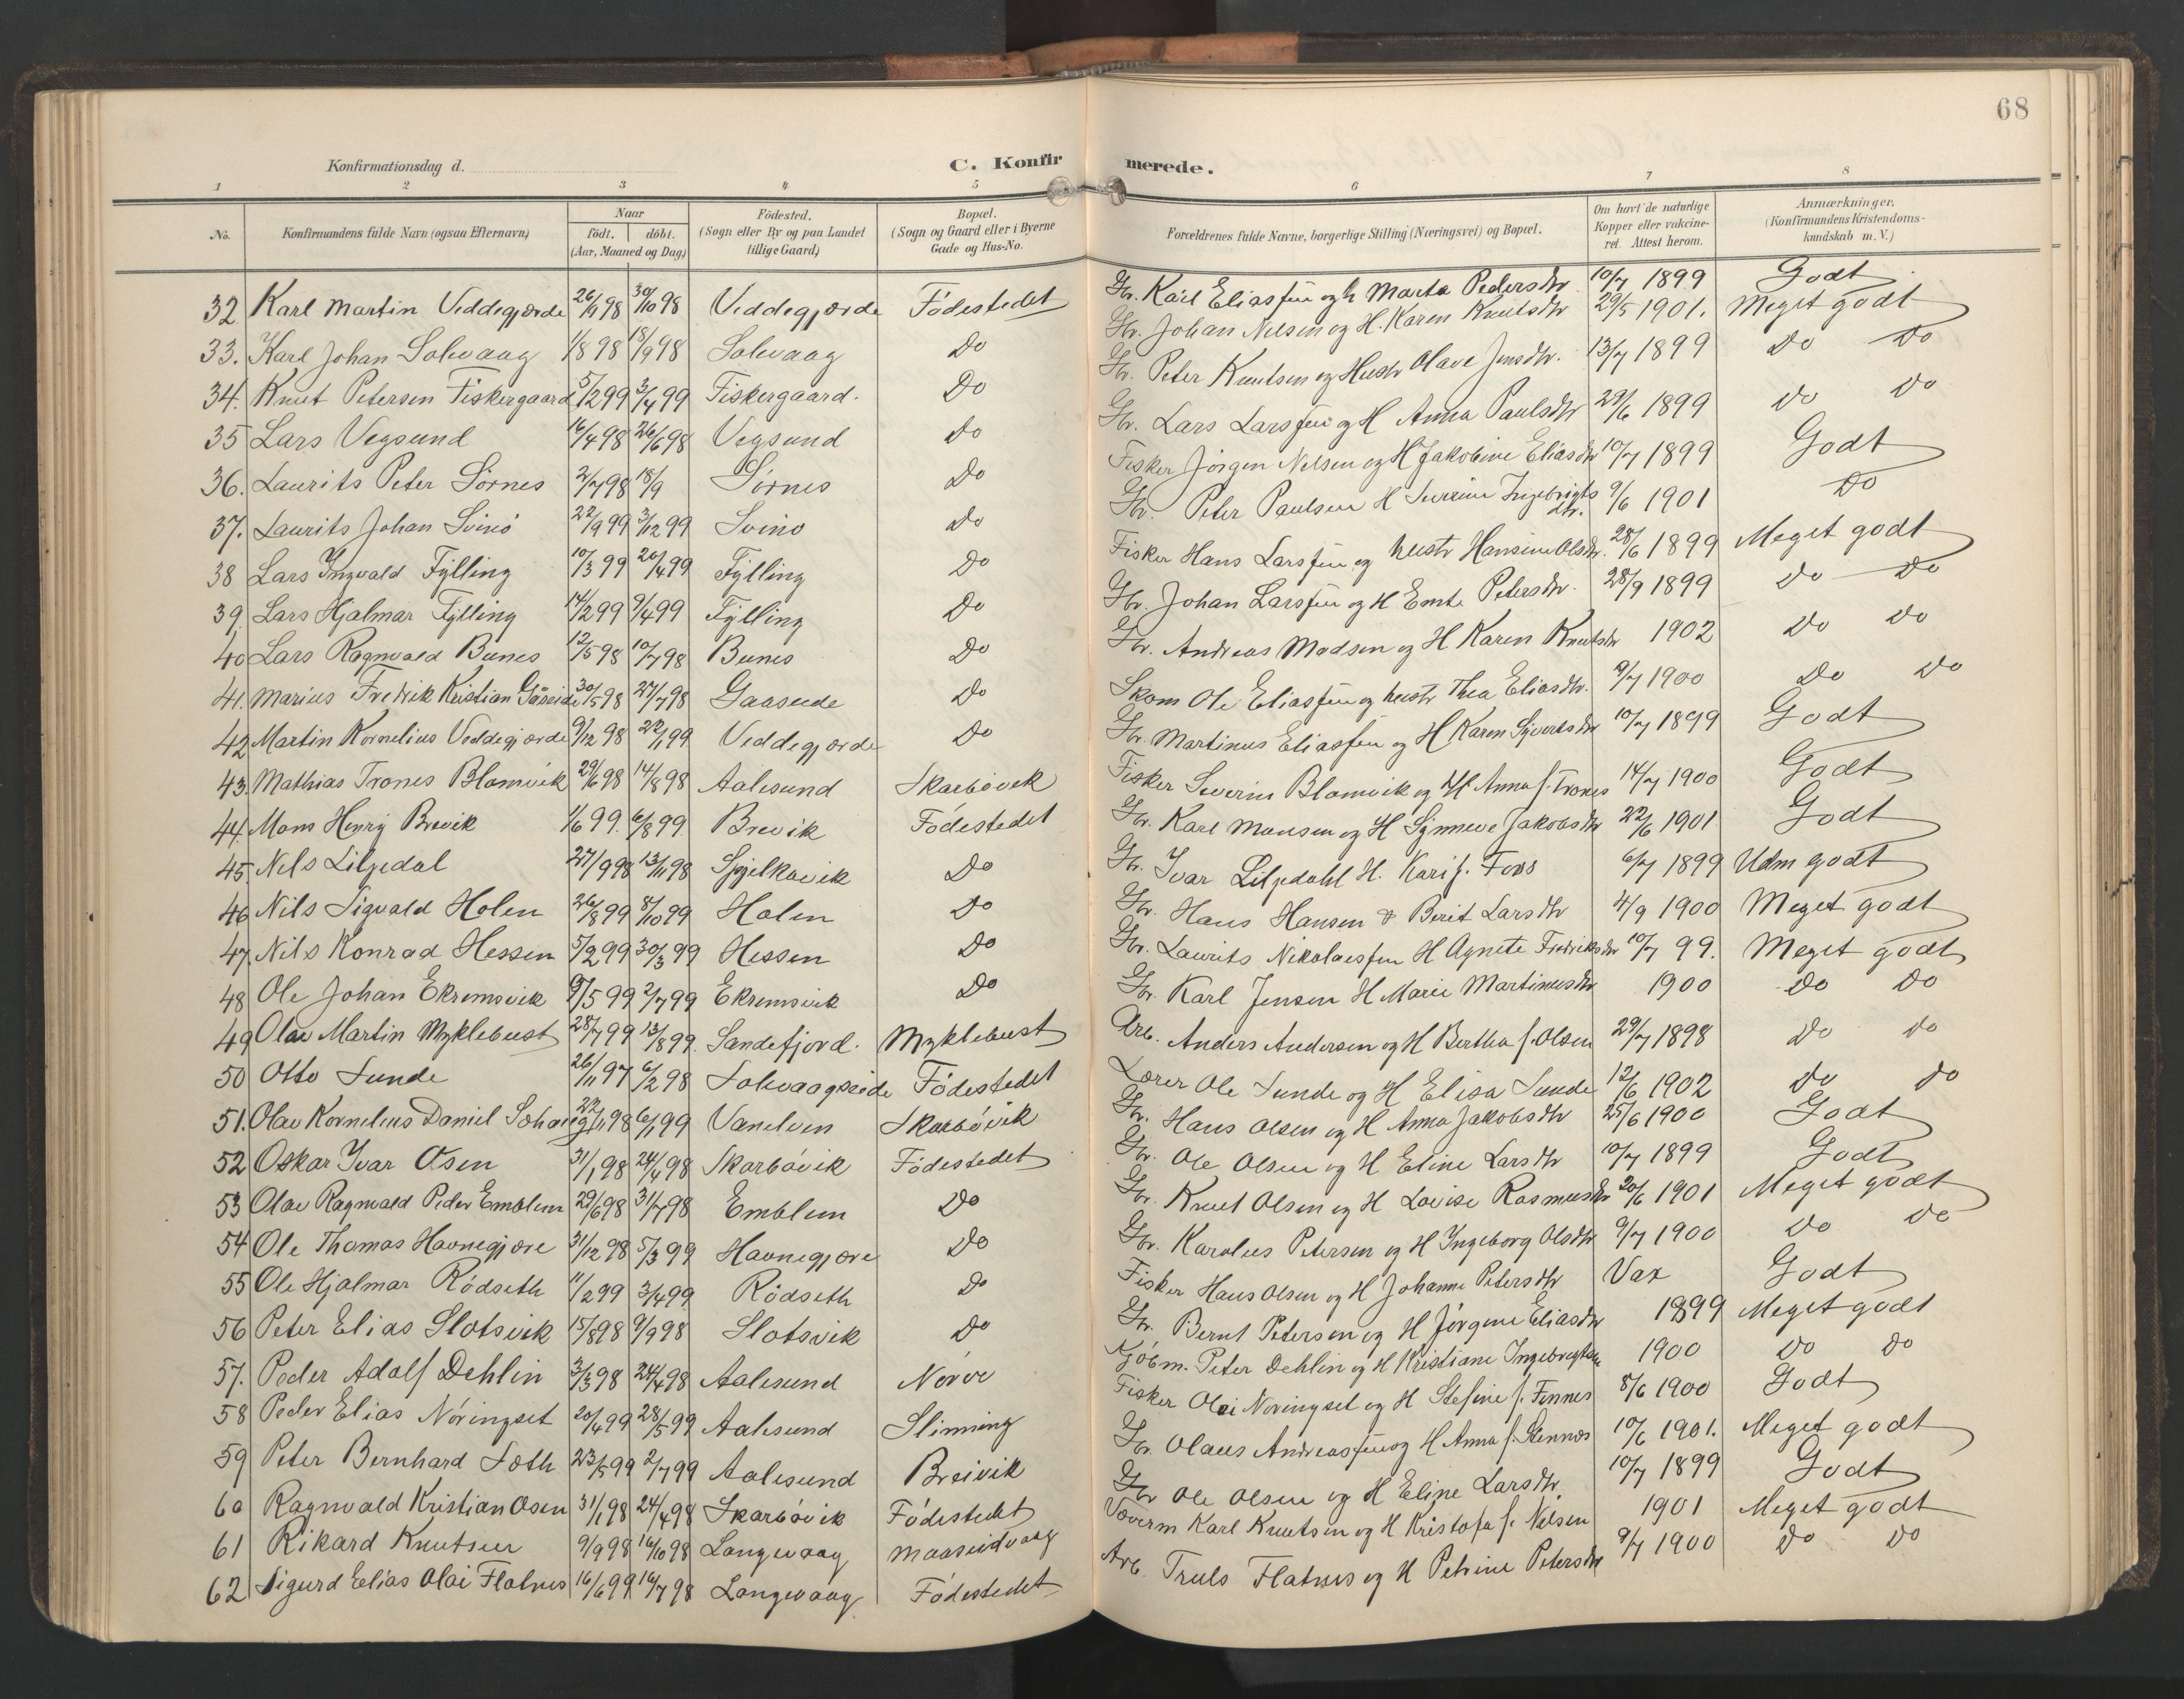 68
Konfirmationsdag d.
C. Konfirmerede.
1 2 3 4 5 6 7 8
No. Konfirmandens fulde Navn (ogsaa Efternavn) Naar födt. döbt. (Aar, Maaned og Dag) Födested. (Sogn eller By og paa Landet tillige Gaard) Bopæl. (Sogn og Gaard eller i Byerne Gade og Hus-No. Forældrenes fulde Navne, borgerlige Stilling (Næringsvei) og Bopæl. Om havt de naturlige Kopper eller vakcineret. Attest herom. Anmærkninger. (Konfirmandens Kristendomskundskab m. V.)
32. Karl Martin Veddegjærde 26/9 98 30/10 98 Veddegjærde Födestedet Gbr. Karl Eliassen og h Marta Pedersdtr 10/7 1899 Godt
33. Karl Johan Solevaag 1/8 98 18/9 98 Solevaag Do Gbr. Johan Nilsen og H. Karen Knutsdtr 29/5 1901. Meget godt
34. Knut Petersen Fiskergaard 5/2 99 3/4 99 Fiskergaard. Do Gbr. Peter Knutsen og Hustr Olave Jensdtr. 13/7 1899 Do Do
35 Lars Vegsund 16/4 98 26/6 98 Vegsund Do Gbr. Lars Larssen og H Anna Paulsdtr 29/6 1899 Do Do
36. Laurits Peter Sörnes 2/7 98 18/9 Sörnes Do Fisker Jörgen Nilsen og H Jakobine Eliasdtr 10/7 1899 Godt
37. Laurits Johan Svinö 22/9 99 3/12 99 Svinö Do Gbr. Peter Paulsen H Severine Ingebrigtsdtr. 9/6 1901 Do
38 Lars Ingvald Fylling 10/3 99 20/4 99 Fylling Do Fisker Hans Larssen og hustr Hansine Olsdtr. 28/6 1899 Meget godt
39. Lars Hjalmar Fylling 14/2 99 9/4 99 Fylling Do Gbr. Johan Larssen og H Emte Petersdtr. 28/9 1899 Do Do
40 Lars Ragnvald Bunes 12/5 98 10/7 98 Bunes Do Gbr. Andreas Madsen og H Karen Knutsdtr 1902 Do Do
41. Marius Fredrik Kristian Gåseide 30/5 98 27/7 98 Gaaseide Do Skom Ole Eliassen og hustr Thea Eliasdtr. 9/7 1900 Do Do
42 Martin Kornelius Veddegjærde 9/12 98 22/1 99 Veddegjærde Do Gbr. Martinus Eliassen og H Karen Sjvertsdtr 10/7 1899 Godt
43. Mathias Trones Blomvik 29/6 98 14/8 98 Aalesund Skarbövik Fisker Severin Blomvik og H Anna f. Trones 14/7 1900 Godt
44. Mons Henry Brevik 1/6 99. 6/8 99. Brevik Födestedet Gbr. Karl Monsen og H Synneve Jakobsdtr 22/6 1901 Godt
45. Nils Liljedal 27/9 98 13/11 98 Spjelkavik Do Gbr. Ivar Liljedahl H. Kari f. Foss 6/7 1899 Udm godt
46 Nils Sigvald Holen 26/8 99 8/10 99 Holen Do Gbr. Hans Hansen & Berit Larsdtr 4/9 1900 Meget godt
47. Nils Konrad Hessen 5/2 99 30/3 99 Hessen Do Gbr. Laurits Nikolaessen H Agnete Fredriksdtr 10/7 99. Meget godt
48 Ole Johan Ekremsvik 9/5 99 2/7 99 Ekremsvik Do Gbr. Karl Jensen H Marie Martinusdtr 1900 Do Do
49 Olav Martin Myklebust 28/7 99 13/8 99. Sandefjord. Myklebust Arb. Anders Andersen og H Bertha f. Olsen 29/7 1898 Do Do
50 Otto Sunde 26/11 97 6/2 98 Solevaagseide Födestedet Lærer Ole Sunde og H Elisa Sunde 12/6 1902 Do Do
51. Olav Kornelius Daniel 22/11 98 6/1 99 Vanelven Skarbövik Gbr. Hans Olsen og H Anna Jakobsdtr 25/6 1900 Godt
52 Oskar Ivar Osen 31/1 98 24/4 98 Skarbövik Födestedet Gbr. Ole Olsen og H Eline Larsdtr 10/7 1899 Godt
53 Olav Ragnvald Peder Emblem 29/6 98 31/7 98 Emblem Do Gbr. Knut Olsen og H Lovise Rasmusdtr 20/6 1901 Meget godt
54 Ole Thomas Havnegjære 31/12 98 5/3 99 Havnegjære Do Gbr. Karolus Petersen og H Ingeborg Olsdtr 9/7 1900 Do Do
55 Ole Hjalmar Rödseth 11/2 99 3/4 99 Rödseth Do Fisker Hans Olsen og H Johanne Petersdtr Vax Godt
56 Peter Elias Slotsvik 15/8 98 9/9 98 Slotsvik Do Gbr. Bernt Petersen og H Jörgine Eliasdtr 1899 Meget godt
57. Peder Adolf Dehlin 3/3 98 24/4 98 Aalesund Nörve Kjöbm. Peter Dehlin og H Kristiane Ingebrigtsen 1900 Do Do
58 Peder Elias Nöringset 20/4 99 28/5 99 Aalesund Slinning Fisker Olai Nöringset og H Stefine f. Finnes 8/6 1900 Godt
59 Peter Bernhard Sæth 23/5 99 2/7 99 Aalesund Breivik Gbr. Olaus Andreassen og H Anna f. Stennes 10/6 1901. Meget godt
60 Ragnvald Kristian Osen 31/1 98 24/4 98 Skarbövik Födestedet Gbr Ole Olsen og H Eline Larsdtr. 10/7 1899 Godt
61 Rikard Knutsen 9/9 98 16/10 98 Langevaag Maaseidvaag Væverm Karl Knutsen og H Kristofa f. Nilsen 1901 Meget godt
62 Sigurd Elias Olai Flatnes 16/6 99 16/7 98 Langevaag Födestedet Arb. Truls Flatnes og H Petrine Petersdtr 9/7 1900 Do Do